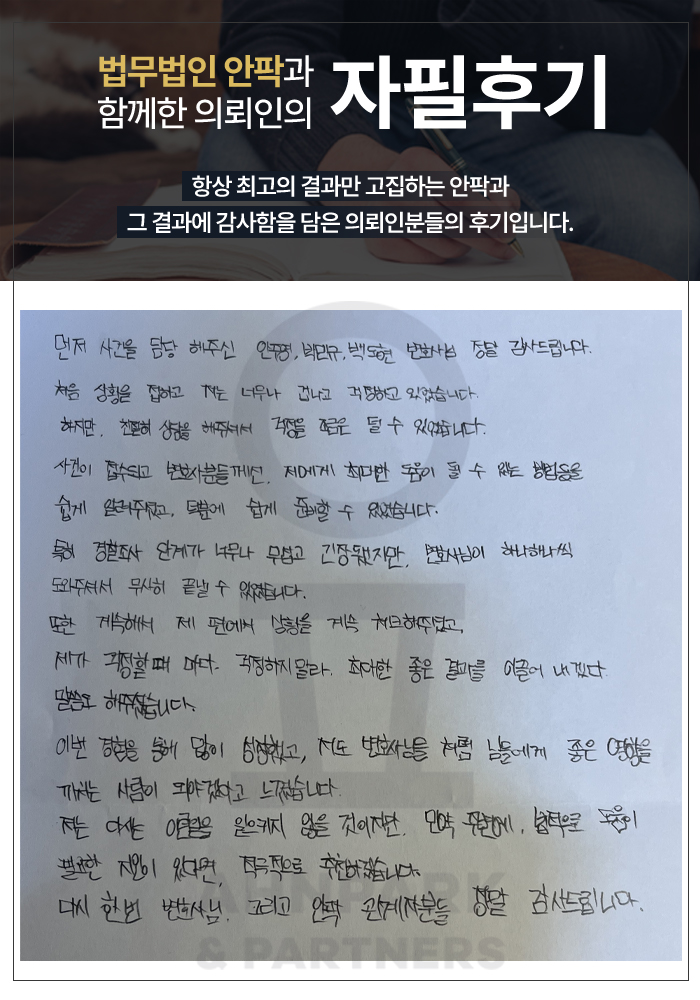 법무법인 안팍과
함께한 의뢰인의
자필후기
항상 최고의 결과만 고집하는 안팍과
그 결과에 감사함을 담은 의뢰인분들의 후기입니다.
먼저 사건을 담당 해주신 안주영, 박민규, 백도현 변호사님 정말 감사드립니다.
처음 상황을 접하고 저는 너무나 겁나고 걱정하고 있었습니다.
하지만, 친절히 상담을 해주셔서 걱정을 조금은 덜 수 있었습니다.
사건이 접수되고 변호사분들께선, 저에게 최대한 도움이 될 수 있는 방법등을
쉽게 알려주셨고, 덕분에 쉽게 준비할 수 있었습니다.
특히 경찰조사 단계가 너무나 무섭고 긴장됐지만, 변호사님이 하나하나씩
도와주셔서 무사히 끝낼 수 있었습니다.
또한 계속해서 제 편에서 상황을 계속 체크해주셨고,
제가 걱정할 때 마다. 걱정하지말라. 최대한 좋은 결과를 이끌어 내겠다.
말씀도 해주셨습니다.
이번 경험을 통해 많이 성장했고, 저도 변호사님들 처럼 남들에게 좋은 영향을
끼치는 사람이 되야겠다고 느꼈습니다.
저는 다시는 일으키지 않을 것이지만, 만약 주변에, 법적으로 도움이
필요한 지인이 있다면, 적극적으로 추천하겠습니다.
다시 한번 변호사님, 그리고 안팍 관계자분들 정말 감사드립니다.
AHNPARK
& PARTNERS